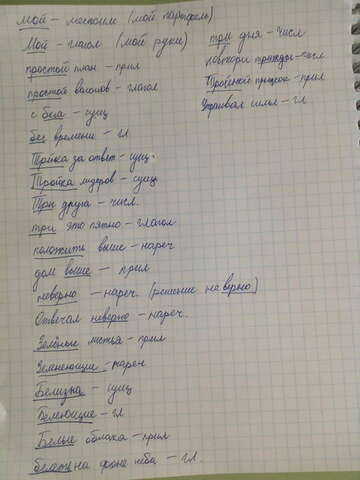 мой – местоим (мой портфель)
Мой – глагол (мой руки)
простой план – прил
простой вагонов – глагол
с бега – сущ
без времени – гл
Тройка за ответ – сущ.
Тройка лидеров – сущ
Три друга – числ.
три это пятно – глагол
положить выше – нареч
дом выше – прил
неверно – нареч. (решение неверно)
Отвечал неверно – нареч.
Зелёные листья – прил
Зеленеющие – нареч
Белизна – сущ
Белеющие – гл
Белые облака – прил
белеть на фоне неба – гл.
три дня – числ
повтори трижды – числ
Тройной прыжок – прил
Утраивал силы – гл